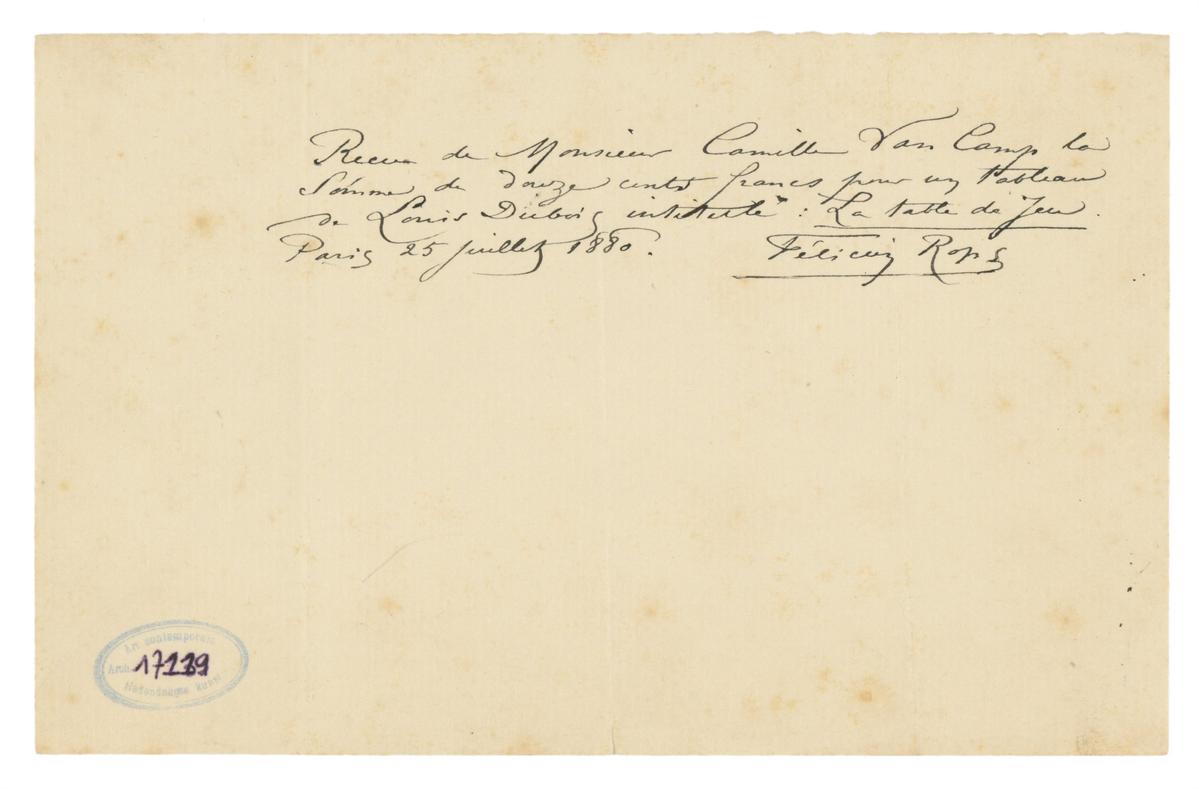 Recu de Monsieur Camille Van Camp la
Somme de douze cents francs pour un tableau
de Louis Dubois intitulé : La table de Jeu.
Paris 25 Juillet 1880. Félicien Rops
Art contemporain
Arch. 17239
Hedendaagse Kunst